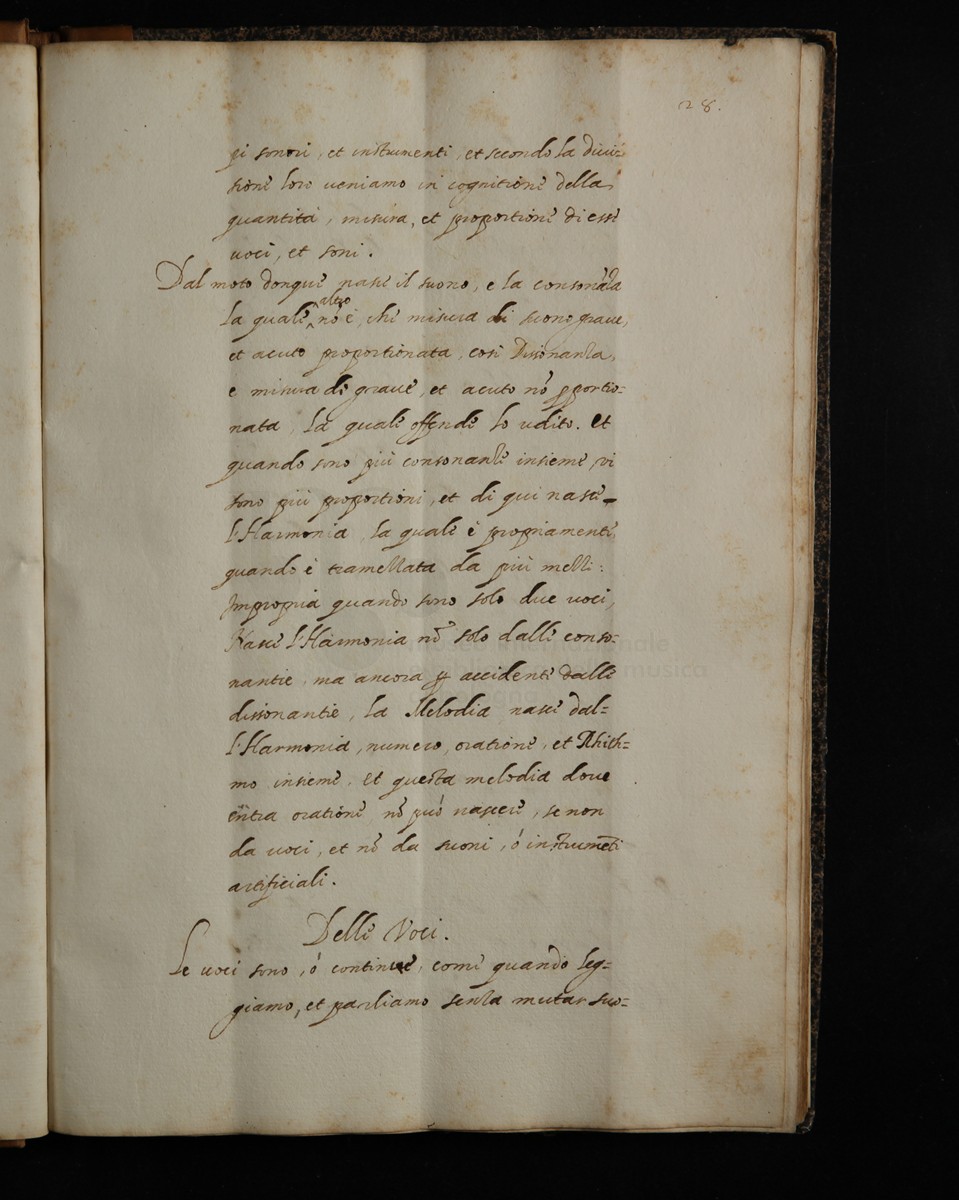 28.
pi sonori, et instrumenti, et secondo la divi=
sione loro veniamo in cognitione della
quantità, misura, et proportione di esse
voci, et soni.
Dal moto donque nasce il suono, e la consonāza
la quale altro nō è, che misura di suono grave,
et acuto proportionata, così Dissonanza,
e misura di grave, et acuto nō pportio=
nata, la quale offende lo udito. Et
quando sono più consonanze insieme vi
sono più proportioni, et di qui nasce
l'Harmonia, la quale è propriamente,
quando è tramezzata da più mezzi:
Impropria quando sono solo due voci,
Nasce l'Harmonia nō solo dalle conso=
nantie, ma ancora p accidente dalle
dissonantie, la Melodia nasce dal=
l'Harmonia, numero, oratione, et Rhith=
mo insieme. Et questa melodia dove
entra oratione nō può nascere, se non
da voci, et nō da suoni, ò instrumēti
artificiali.
Delle Voci.
Le voci sono, ò continue, come quando leg=
giamo, et parliamo senza mutar suo=
museo internazionale
e biblioteca della musica